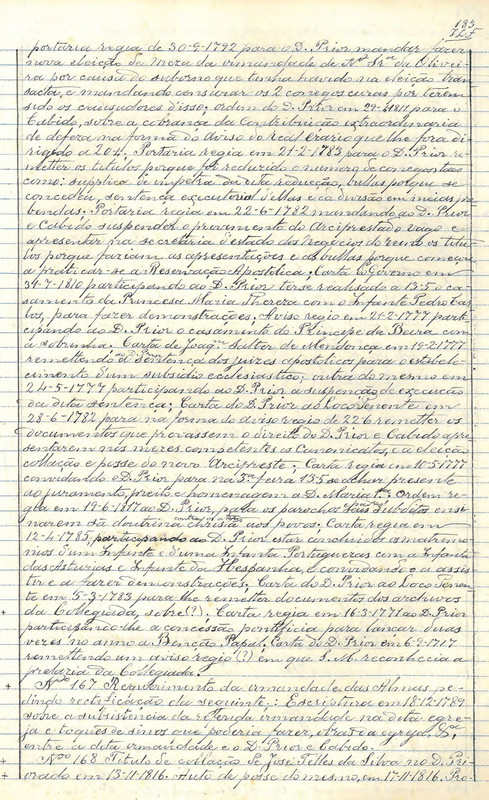 183
portaria regia de 30-9-1792 para o D. Prior mandar fazer
nova eleição de Meza da irmandade de Nª Srª da Olivei-
ra por causa do suborno que tinha havido na eleição tran-
sacta, e mandando censurar os 2 conegos curas por terem
sido os causadores d'isso; ordem do D. Prior em 29-4-1811 para o
Cabido, sobre a cobrança da contribuição extraordinaria
de defeza na forma do Aviso do real Erario que lhe fora di-
rigido a 20-4. Portaria regia em 21-2-1783 para o D. Prior re-
metter os titulos porque foi reduzido o numero de conegos taes
como: supplica de impetra da dita reducção, bullas porque se
concedeu, sentença executorial d'ellas e da divisão em meias pre-
bendas; Portaria regia em 22-6-1782 mandando ao D. Prior
e Cabido suspender o provimento do Arciprestado vago e
apresentar na secretaria d'estado dos Negocios do reino os titu-
los porque faziam as apresentações e as bullas porque começou
a praticar-se a Reservação Apostolica; Carta do Governo em
31-7-1810 participando ao D. Prior ter-se realisado a 13-5 o ca-
samento da Princesa Maria Thereza com o Infante Pedro Car-
los, para fazer demonstrações; Aviso regio em 21-2-1777 parti-
cipando ao D. Prior o casamento do Principe da Beira com
a sobrinha. Carta de Joaqm Salter de Mendonça em 19-2-1777
remettendo ao D. Prior a Sentença dos juizes apostolicos para o estabele-
cimento d'um subsidio ecclesiastico; outra do mesmo em
24-5-1777 participando ao D. Prior a suspenção de execução
da dita sentença; Carta do D. Prior ao Loco Tenente em
28-6-1782 para na forma do aviso regio de 22-6 remetter os
documentos que provassem o direito do D. Prior e Cabido apre-
sentarem nos mezes competentes os Canonicatos, e a eleição
collação e posse do novo Arcipreste; Carta regia em 10-5-1777
convidando o D. Prior para na 3ª feira 13-5 se achar presente
ao juramento, preito e homenagem a D. Maria 1ª; Ordem re-
gia em 19-6-1817 ao D. Prior, para os parochos seus subditos ensi-
narem a doutrina christã aos povos. Carta regia em
12-4-1785, participando ao D. Prior estar concluidos os matrimo-
nios d'um Infante e d'uma Infanta Portuguezas com a Infanta
das Asturias e Infante da Hespanha, e convidando-o a assis-
tir e a fazer demonstrações; Carta do D. Prior ao Loco Tenen-
te em 5-3-1783 para lhe remetter documentos dos archivos
da Collegiada, sobre (?). Carta regia em 16-3-1771 ao D. Prior
participando-lhe a concessão pontificia para lançar duas
vezes no anno a Benção Papal. Carta do D. Prior em 6-2-1717
remettendo um aviso regio (?) em que S. M. reconheccia a
pretaria da Collegiada.
Nº 167 Requerimento da irmandade das Almas pe-
dindo rectificação da seguinte: Escriptura em 18-12-1789
sobre a subsistencia da referida irmandade na dita egre-
ja e toques de sinos que poderia fazer, obras da egreja &,
entre a dita irmandade e o D. Prior e Cabido.
Nº 168 Titulo de collação de José Telles da Silva no D. Pri-
orado em 13-11-1816. Auto de posse do mesmo, em 17-11-1816. Pro-